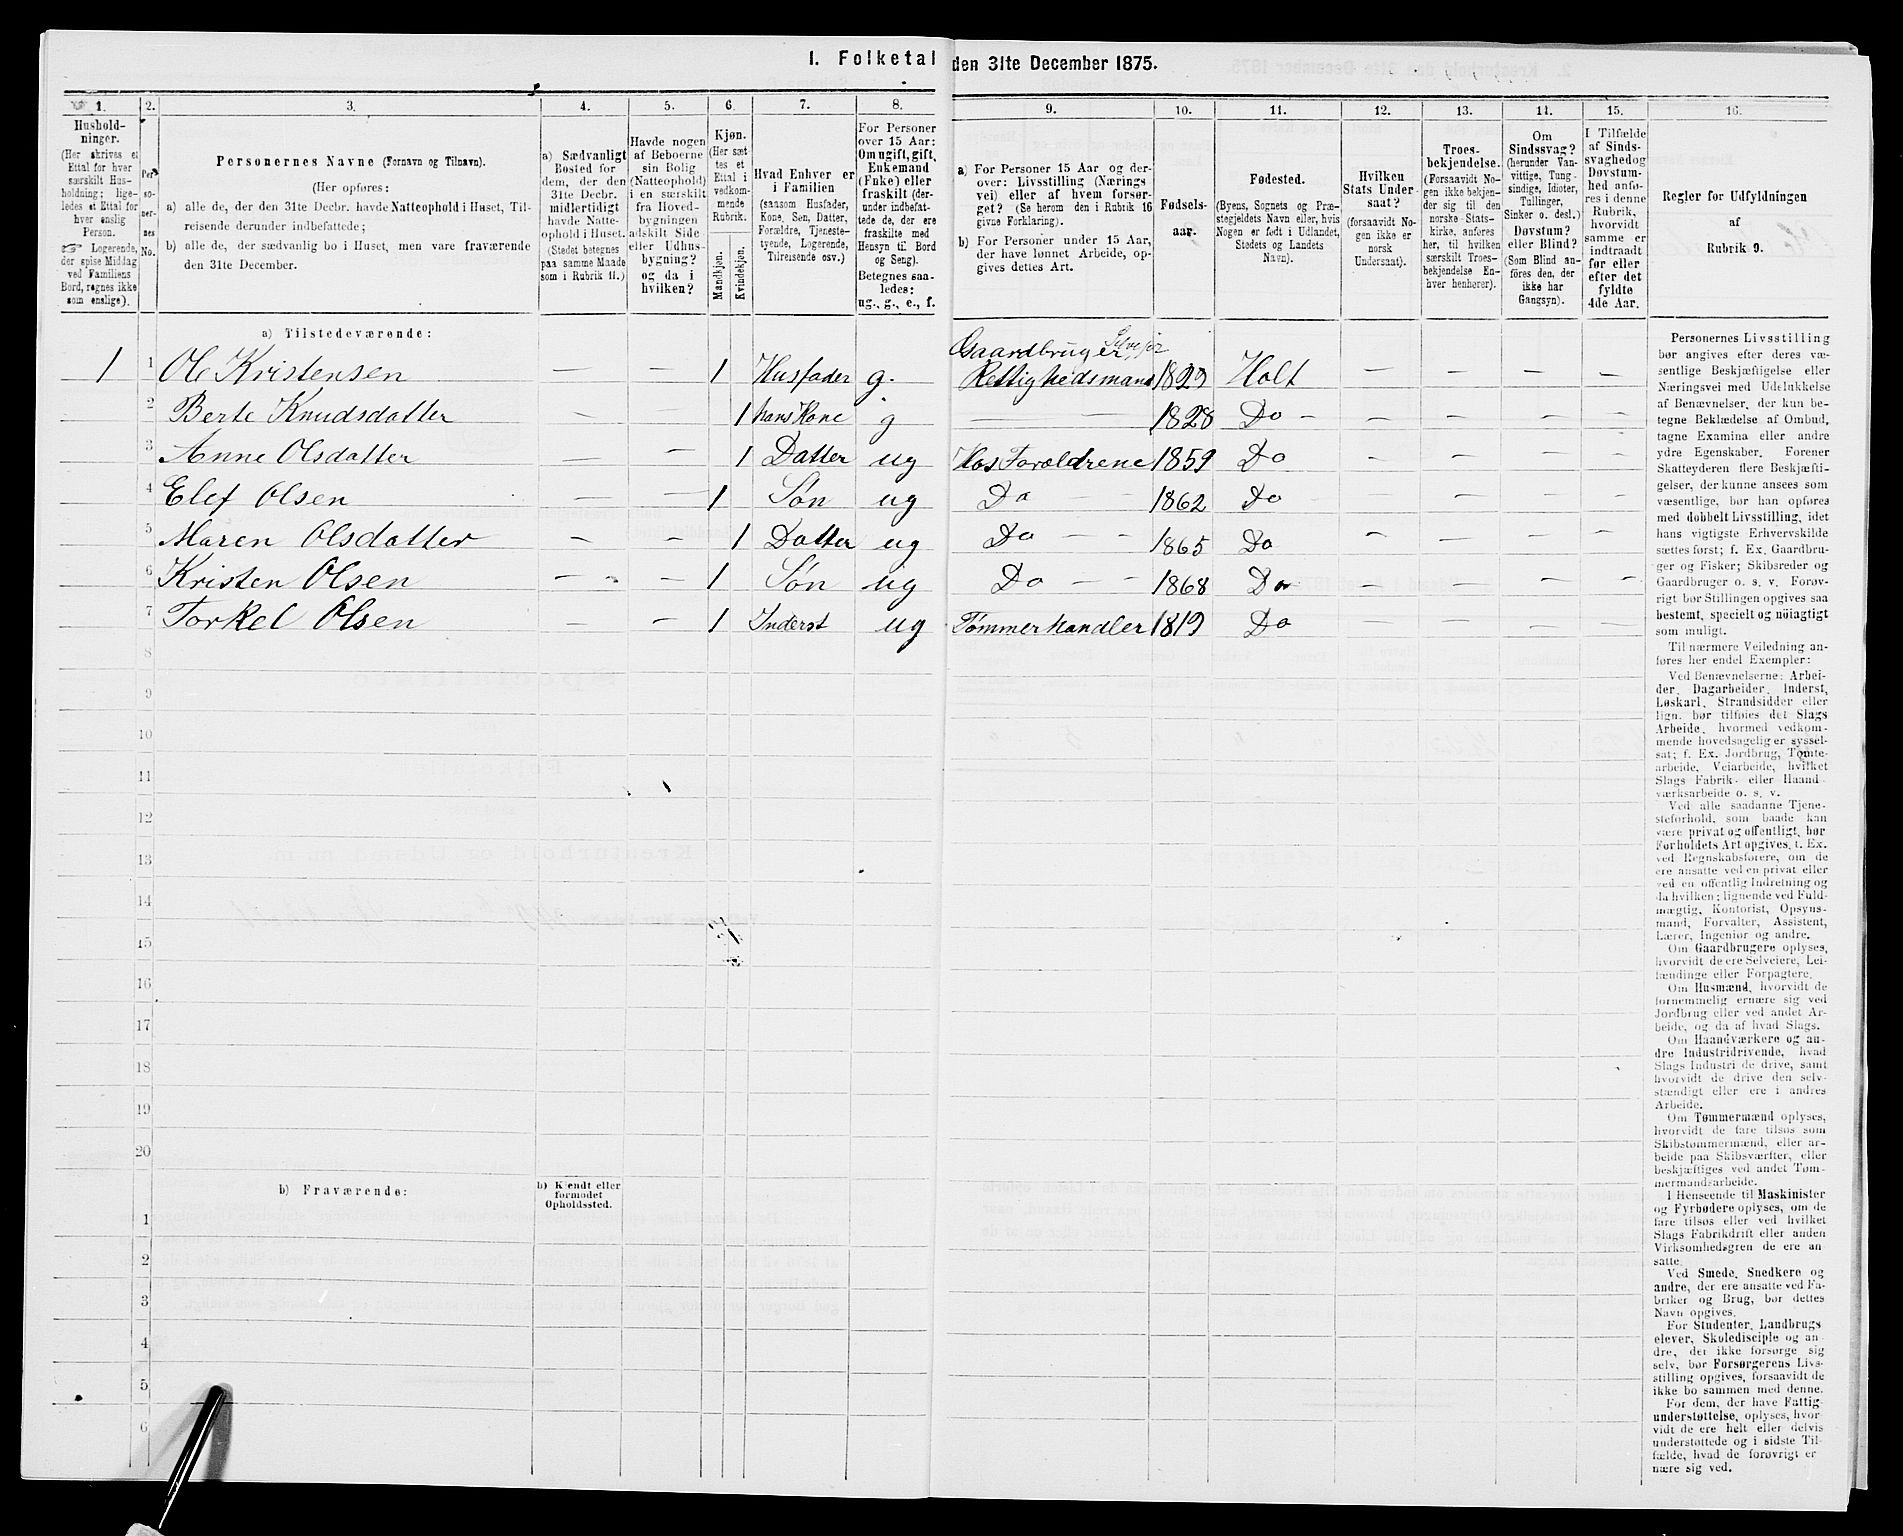 1. Folketal den 31te December 1875.
1. 2. 3. 4. 5. 6. 7. 8. 9. 10. 11. 12. 13. 14. 15. 16.
Hushold-
ninger.
(Her skrives et
Ettal for hver
særskilt Hus-
holdning; lige-
ledes et Ettal for
hver enslig
Person.
☞ Logerende,
der spise Middag
ved Familiens
Bord, regnes ikke
som enslige).
Per-
so-
ner-
nes
No.
Personernes Navne (Fornavn og Tilnavn).
(Her opføres:
a) alle de, der den 31te Decbr. havde Natteophold i Huset, Til-
reisende derunder indbefattede;
b) alle de, der sædvanlig bo i Huset, men vare fraværende
den 31te December.
a) Sædvanligt
Bosted for
dem, der den
31te Decbr.
midlertidigt
havde Natte-
ophold i Huset.
(Stedet betegnes
paa samme Maade
som i Rubrik 11.)
Havde nogen
af Beboerne
sin Bolig
(Natteophold)
i en særskilt
fra Hoved-
bygningen
adskilt Side
eller Udhus-
bygning?
og da i
hvilken?
Kjøn.
(Her sæt-
tes et
Ettal i
vedkom-
mende
Rubrik.
Mandkjøn.
Kvindekjøn.
Hvad Enhver er
i Familien
(saasom Husfader,
Kone, Søn, Datter,
Forældre, Tjeneste-
tyende, Logerende,
Tilreisende osv.)
For Personer
over 15 Aar:
Om ugift, gift,
Enkemand
(Enke) eller
fraskilt (der-
under indbefat-
tede de, der ere
fraskilte med
Hensyn til Bord
og Seng).
Betegnes saa-
ledes:
ug., g., e., f.
a) For Personer 15 Aar og der-
over: Livsstilling (Nærings-
vei) eller af hvem forsør-
get? (Se herom den i Rubrik 16
givne Forklaring).
b) For Personer under 15 Aar,
der have lønnet Arbeide, op-
gives dettes Art.
Fødsels-
aar.
Fødested.
(Byens, Sognets og Præ-
stegjeldets Navn eller, hvis
Nogen er født i Udlandet,
Stedets og Landets
Navn).
Hvilken
Stats Under-
saat?
(forsaavidt No-
gen ikke er
norsk
Undersaat).
Troes-
bekjendelse.
(Forsaavidt No-
gen ikke bekjen-
der sig til den
norske Stats-
kirke, anføres
her, til hvilken
særskilt Troes-
bekjendelse En-
hver henhører).
Om
Sindssvag?
(herunder Van-
vittige, Tung-
sindige, Idioter,
Tullinger,
Sinker o. desl.)
Døvstum?
eller Blind?
(Som Blind an-
føres den, der
ikke har
Gangsyn).
I Tilfælde
af Sinds-
svaghed og
Døvstum-
hed anfø-
res i denne
Rubrik,
hvorvidt
samme er
indtraadt
før eller
efter det
fyldte
4de Aar.
Regler for Udfyldningen
af
Rubrik 9.
a) Tilstedeværende:
Gaardbruger Selveier
1 1 Ole Kristensen — — 1 Husfader g. Rettighedsmand 1829 Holt — — — —
2 Berte Knudsdatter — — 1 hans Kone g — — 1828 Do — — — — —
3 Anne Olsdatter — — 1 Datter ug Hos Forældrene 1859 Do — — — —
4 Elef Olsen — — 1 Søn ug Do — — 1862 Do — — — —
5 Maren Olsdatter — — 1 Datter ug Do — — 1865 Do — — — —
6 Kristen Olsen — — 1 Søn ug Do — — 1868 Do — — — —
7 Torkel Olsen — — 1 Inderst ug Tømmerhandler 1819 Do — — — —
8
9
10
11
12
13
14
15
16
17
18
19
20
b) Fraværende:
b) Kjendt eller
formodet
Opholdssted.
1
2
3
4
5
6
Personernes Livsstilling
bør angives efter deres væ-
sentlige Beskjæftigelse eller
Næringsvei med Udelukkelse
af Benævnelser, der kun be-
tegne Beklædelse af Ombud,
tagne Examina eller andre
ydre Egenskaber. Forener
Skatteyderen flere Beskjæfti-
gelser, der kunne ansees som
væsentlige, bør han opføres
med dobbelt Livsstilling, idet
hans vigtigste Erhvervskilde
sættes først; f. Ex. Gaardbru-
ger og Fisker; Skibsreder og
Gaardbruger o. s. v. Forøv-
rigt bør Stillingen opgives saa
bestemt, specielt og nöiagtigt
som muligt.
Til nærmere Veiledning an-
føres her endel Exempler:
Ved Benævnelserne: Arbei-
der, Dagarbeider, Inderst,
Løskarl, Strandsidder eller
lign. bør tilføies det Slags
Arbeide, hvormed vedkom-
mende hovedsagelig er syssel-
sat; f. Ex. Jordbrug, Tomte-
arbeide, Veiarbeide, hvilket
Slags Fabrik- eller Haand-
værksarbeide o. s. v.
Ved alle saadanne Tjene-
steforhold, som baade kan
være privat og offentligt, bør
Forholdets Art opgives, f. Ex.
ved Regnskabsførere, om de
ere ansatte ved en privat eller
ved en offentlig Indretning og
da hvilken; lignende ved Fuld-
mægtig, Kontorist, Opsyns-
mand, Forvalter, Assistent,
Lærer, Ingeniør og andre.
Om Gaardbrugere oplyses,
hvorvidt de ere Selveiere, Lei-
lændinge eller Forpagtere.
Om Husmænd, hvorvidt de
fornemmelig ernære sig ved
Jordbrug eller ved andet Ar-
beide, og da af hvad Slags.
Om Haandværkere og an-
dre Industridrivende, hvad
Slags Industri de drive, samt
hvorvidt de drive den selv-
stændigt eller ere i andres
Arbeide.
Om Tømmermænd oplyses,
hvorvidt de fare tilsøs som
Skibstømmermænd, eller ar-
beide paa Skibsværfter, eller
beskjæftiges ved andet Tøm-
mermandsarbeide.
I Henseende til Maskinister
og Fyrbødere oplyses, om de
fare tilsøs eller ved hvilket
Slags Fabrikdrift eller anden
Virksomhedsgren de ere an-
satte.
Ved Smede, Snedkere og
andre, der ere ansatte ved Fa-
briker og Brug, bør dettes
Navn opgives.
For Studenter, Landbrugs-
elever, Skoledisciple og an-
dre, der ikke forsørge sig
selv, bør Forsørgerens Livs-
stilling opgives, forsaavidt de
ikke bo sammen med denne.
For dem, der have Fattig-
understøttelse, oplyses, hvor-
vidt de ere helt eller delvis
understøttede og i sidste Til-
fælde, hvad de forøvrigt er
nære sig ved.